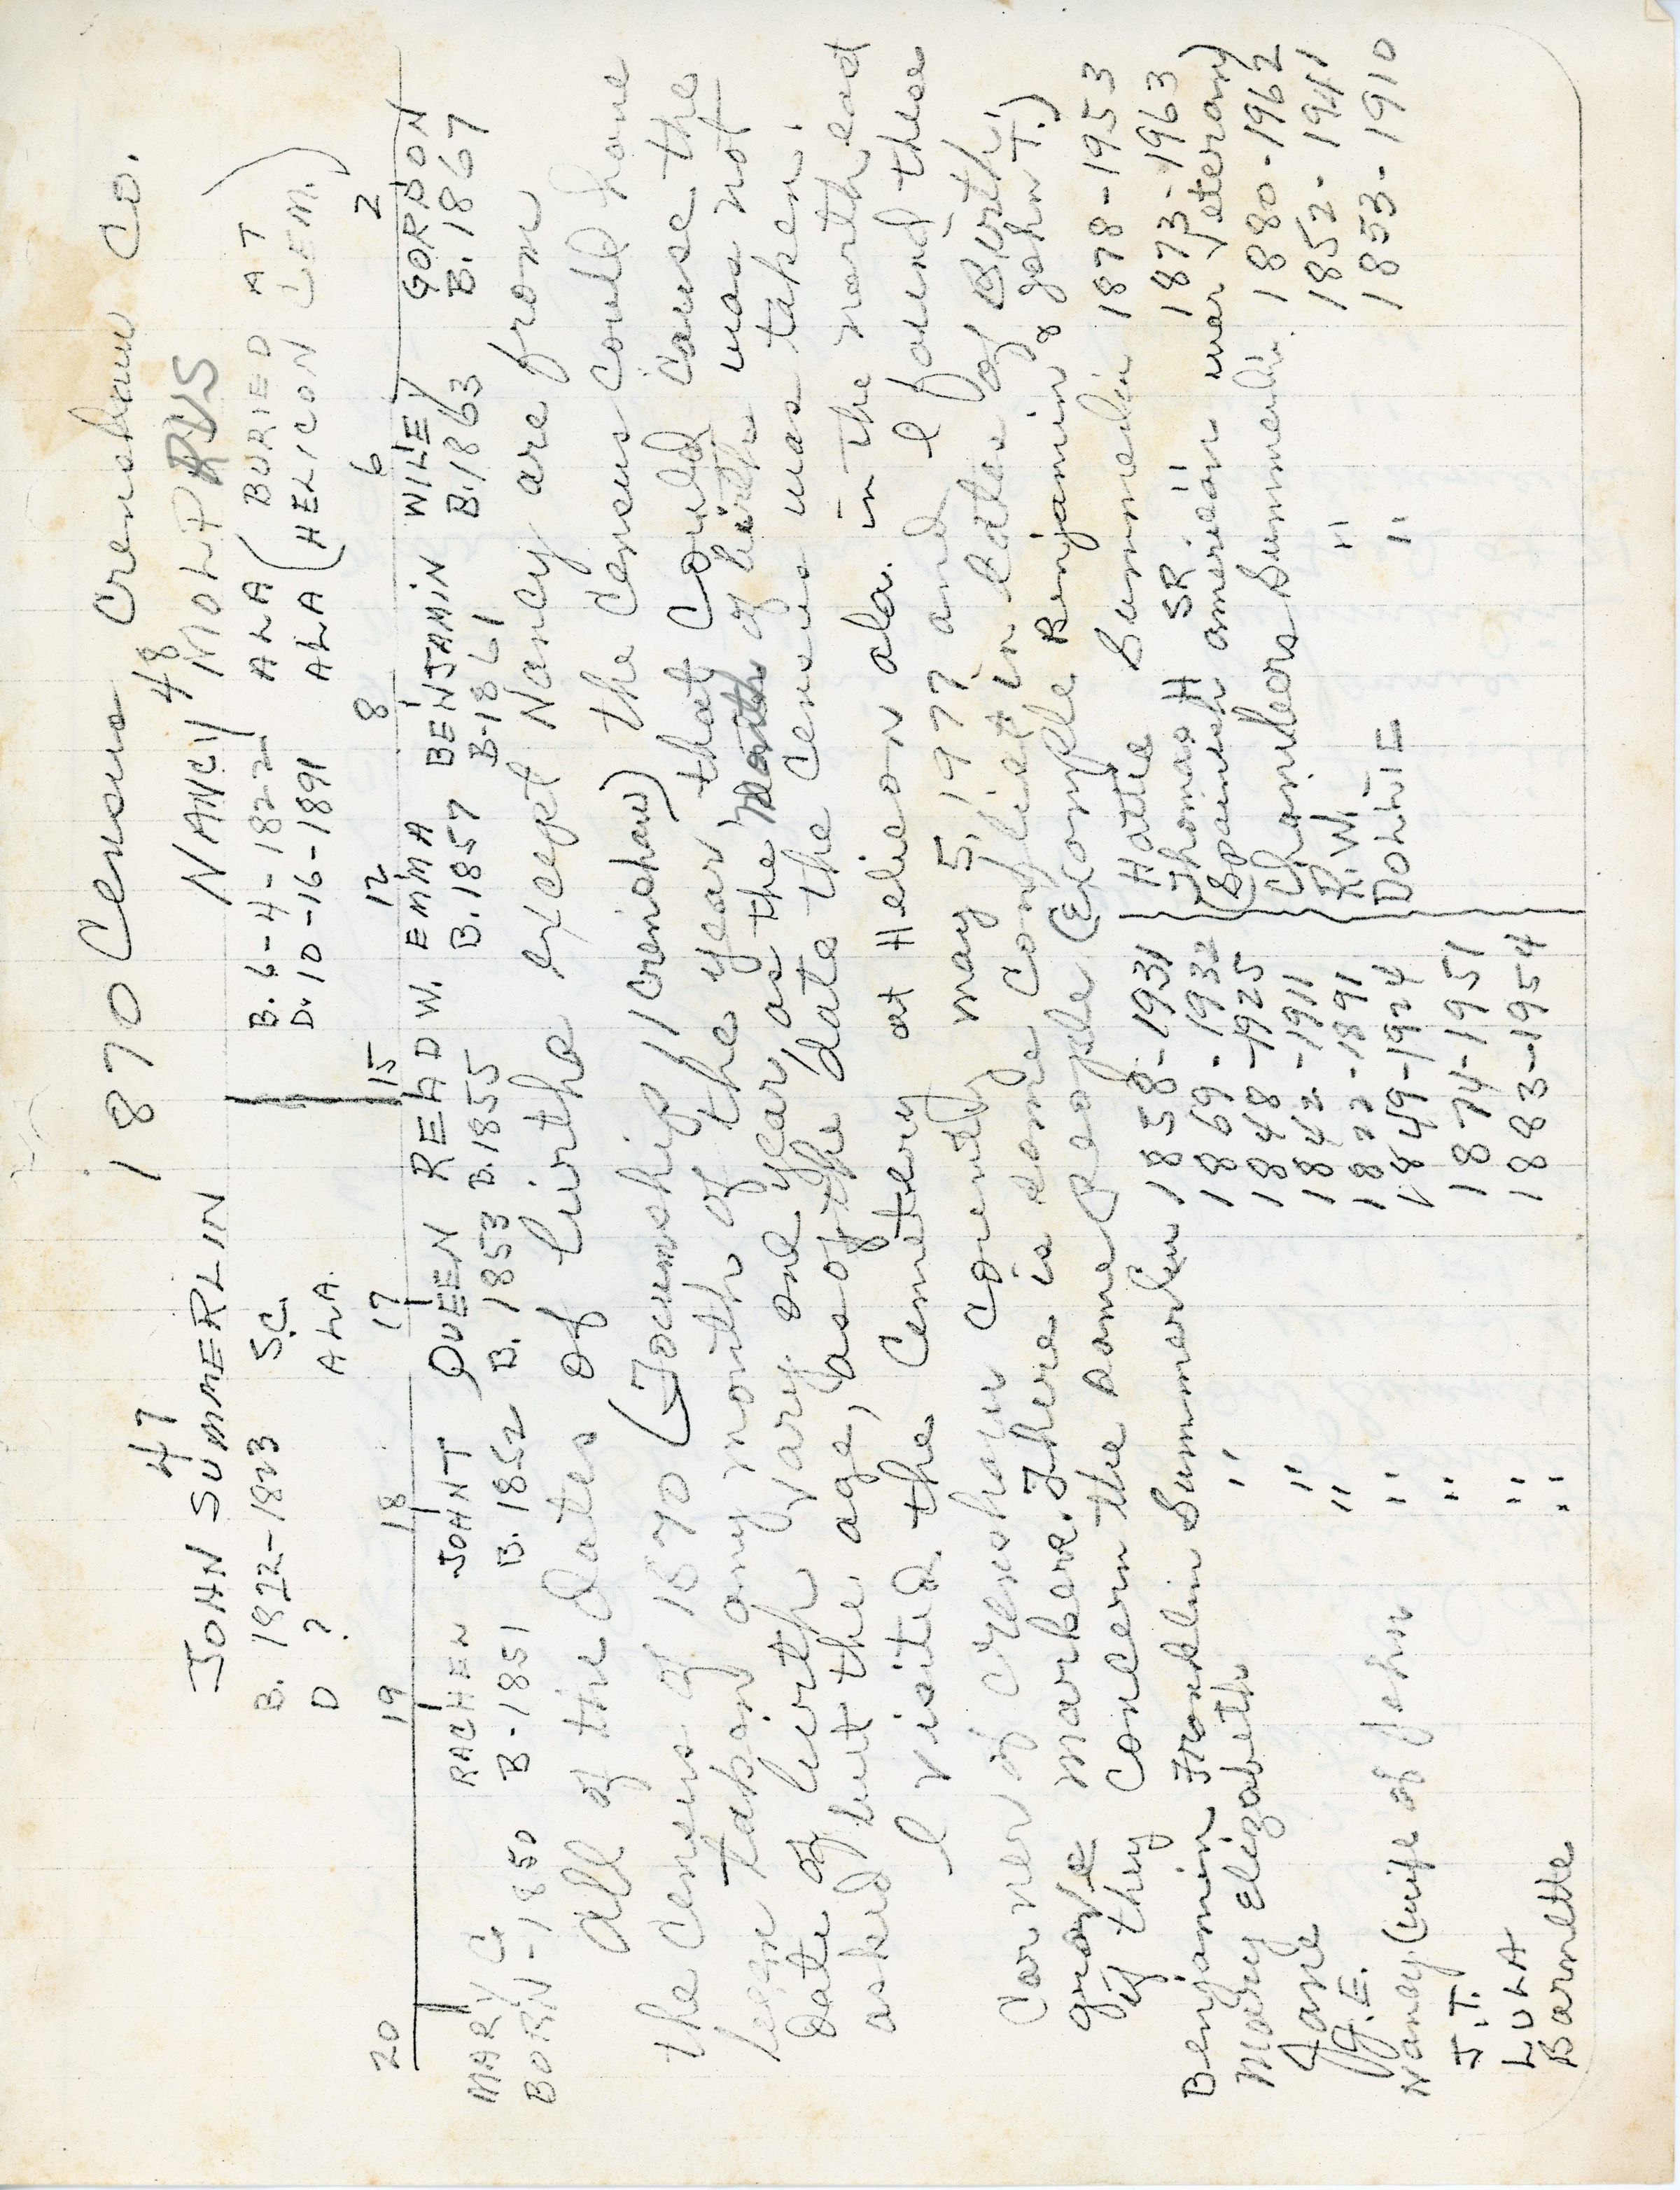 1870 Census Crenshaw Co.
47 48
JOHN SUMMERLIN NANCY MOLPRUS
B. 1822-1823 S.C. B. 6-4-1822 ALA (BURIED AT
D ? ALA. D. 10-16-1891 ALA (HELICON CEM.)
20 19 18 17 15 12 8 6 2
MARY C RACHEN JOHN T QUEEN READ W. EMMA BENJAMIN WILEY GORDON
BORN-1850 B-1851 B. 1852 B. 1853 B.1855 B. 1857 B-1861 B.1863 B. 1867
All of the Dates of birthe except Nancy are from
the census of 1870 (Township 11 Crenshaw) the Census could have
been taken any month of the year, that could cause the
date of birth vary one year as the month of birth was not
asked but the age, as of the date the census was taken.
I visited the Cemetery at Helicon ala. in the north east
Corner of Crenshaw County may 5, 1977 and I found these
grave markers. There is some conflict in dates of Birth,
if they concern the same people (Example Benjamin & John T.)
Benjamin Franklin Summerlin 1858-1931 Hattie Summerlin 1878-1953
Mary Elizabeth " 1869-1932 Thomas H SR. " 1873-1963
Jane " 1848-1925 (Spainish american war veteran)
" 1842-1911 Chambers Summerlin. 1880-1962
Nancy (wife of John " 1822-1891 R.W. " 1852-1941
J.T. " 1849-1924 DOLLIE " 1853-1910
LULA " 1874-1951
Barnette " 1883-1954